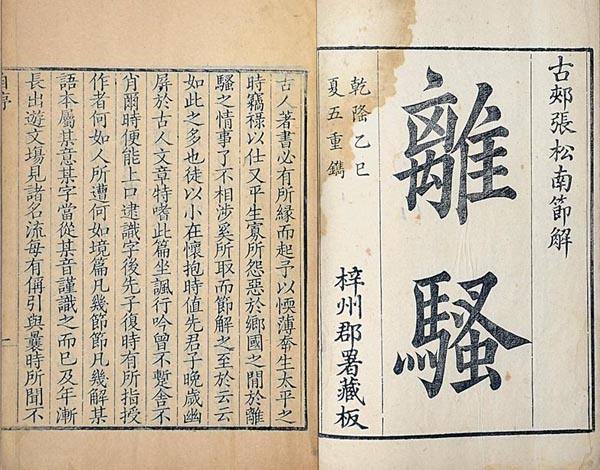 古郟張松南節解
離騷
乾隆乙巳
夏五重鐫
梓州郡署藏板
古人著書必有所緣而起予以愞薄幸生太平之
時竊祿以仕又平生寡所怨惡於鄉國之閒於離
騷之情事了不相涉奚所取而節解之至於云云
如此之多也徒以小在懷抱時值先君子晚歲幽
屏於古人文章特嗜此篇坐諷行吟曾不蹔舍不
肖爾時便能上口逮識字後先子復時有所指授
作者何如人所遭何如境篇凡幾節節凡幾解某
語本屬某意某字當從某音謹識之而已及年漸
長出遊文場見諸名流每有稱引與曩時所聞不
一